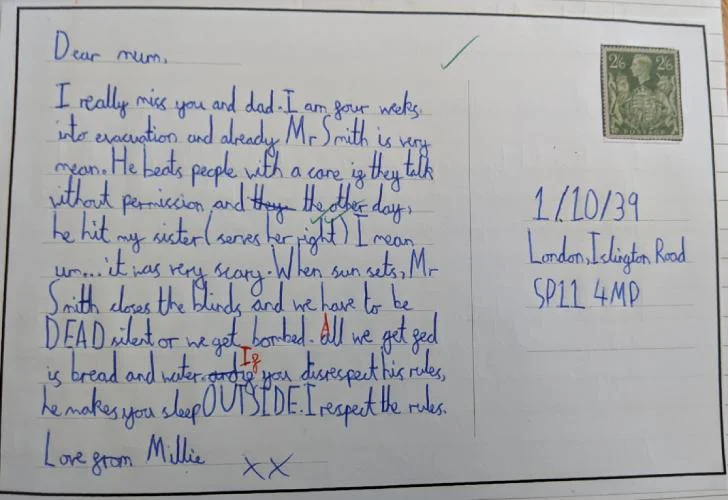 Dear mum,
I really miss you and dad. I am four weeks
into evacuation and already Mr Smith is very
mean. He beats people with a cane if they talk
without permission and they the other day,
he hit my sister (serves her right) I mean
um... it was very scary. When sun sets, Mr
Smith closes the blinds and we have to be
DEAD silent or we get bombed. All we get fed
is bread and water. and if If you disrespect his rules,
he makes you sleep OUTSIDE. I respect the rules.
Love from Millie xx
2/6 2/6
1/10/39
London, Islington Road
SP11 4MP